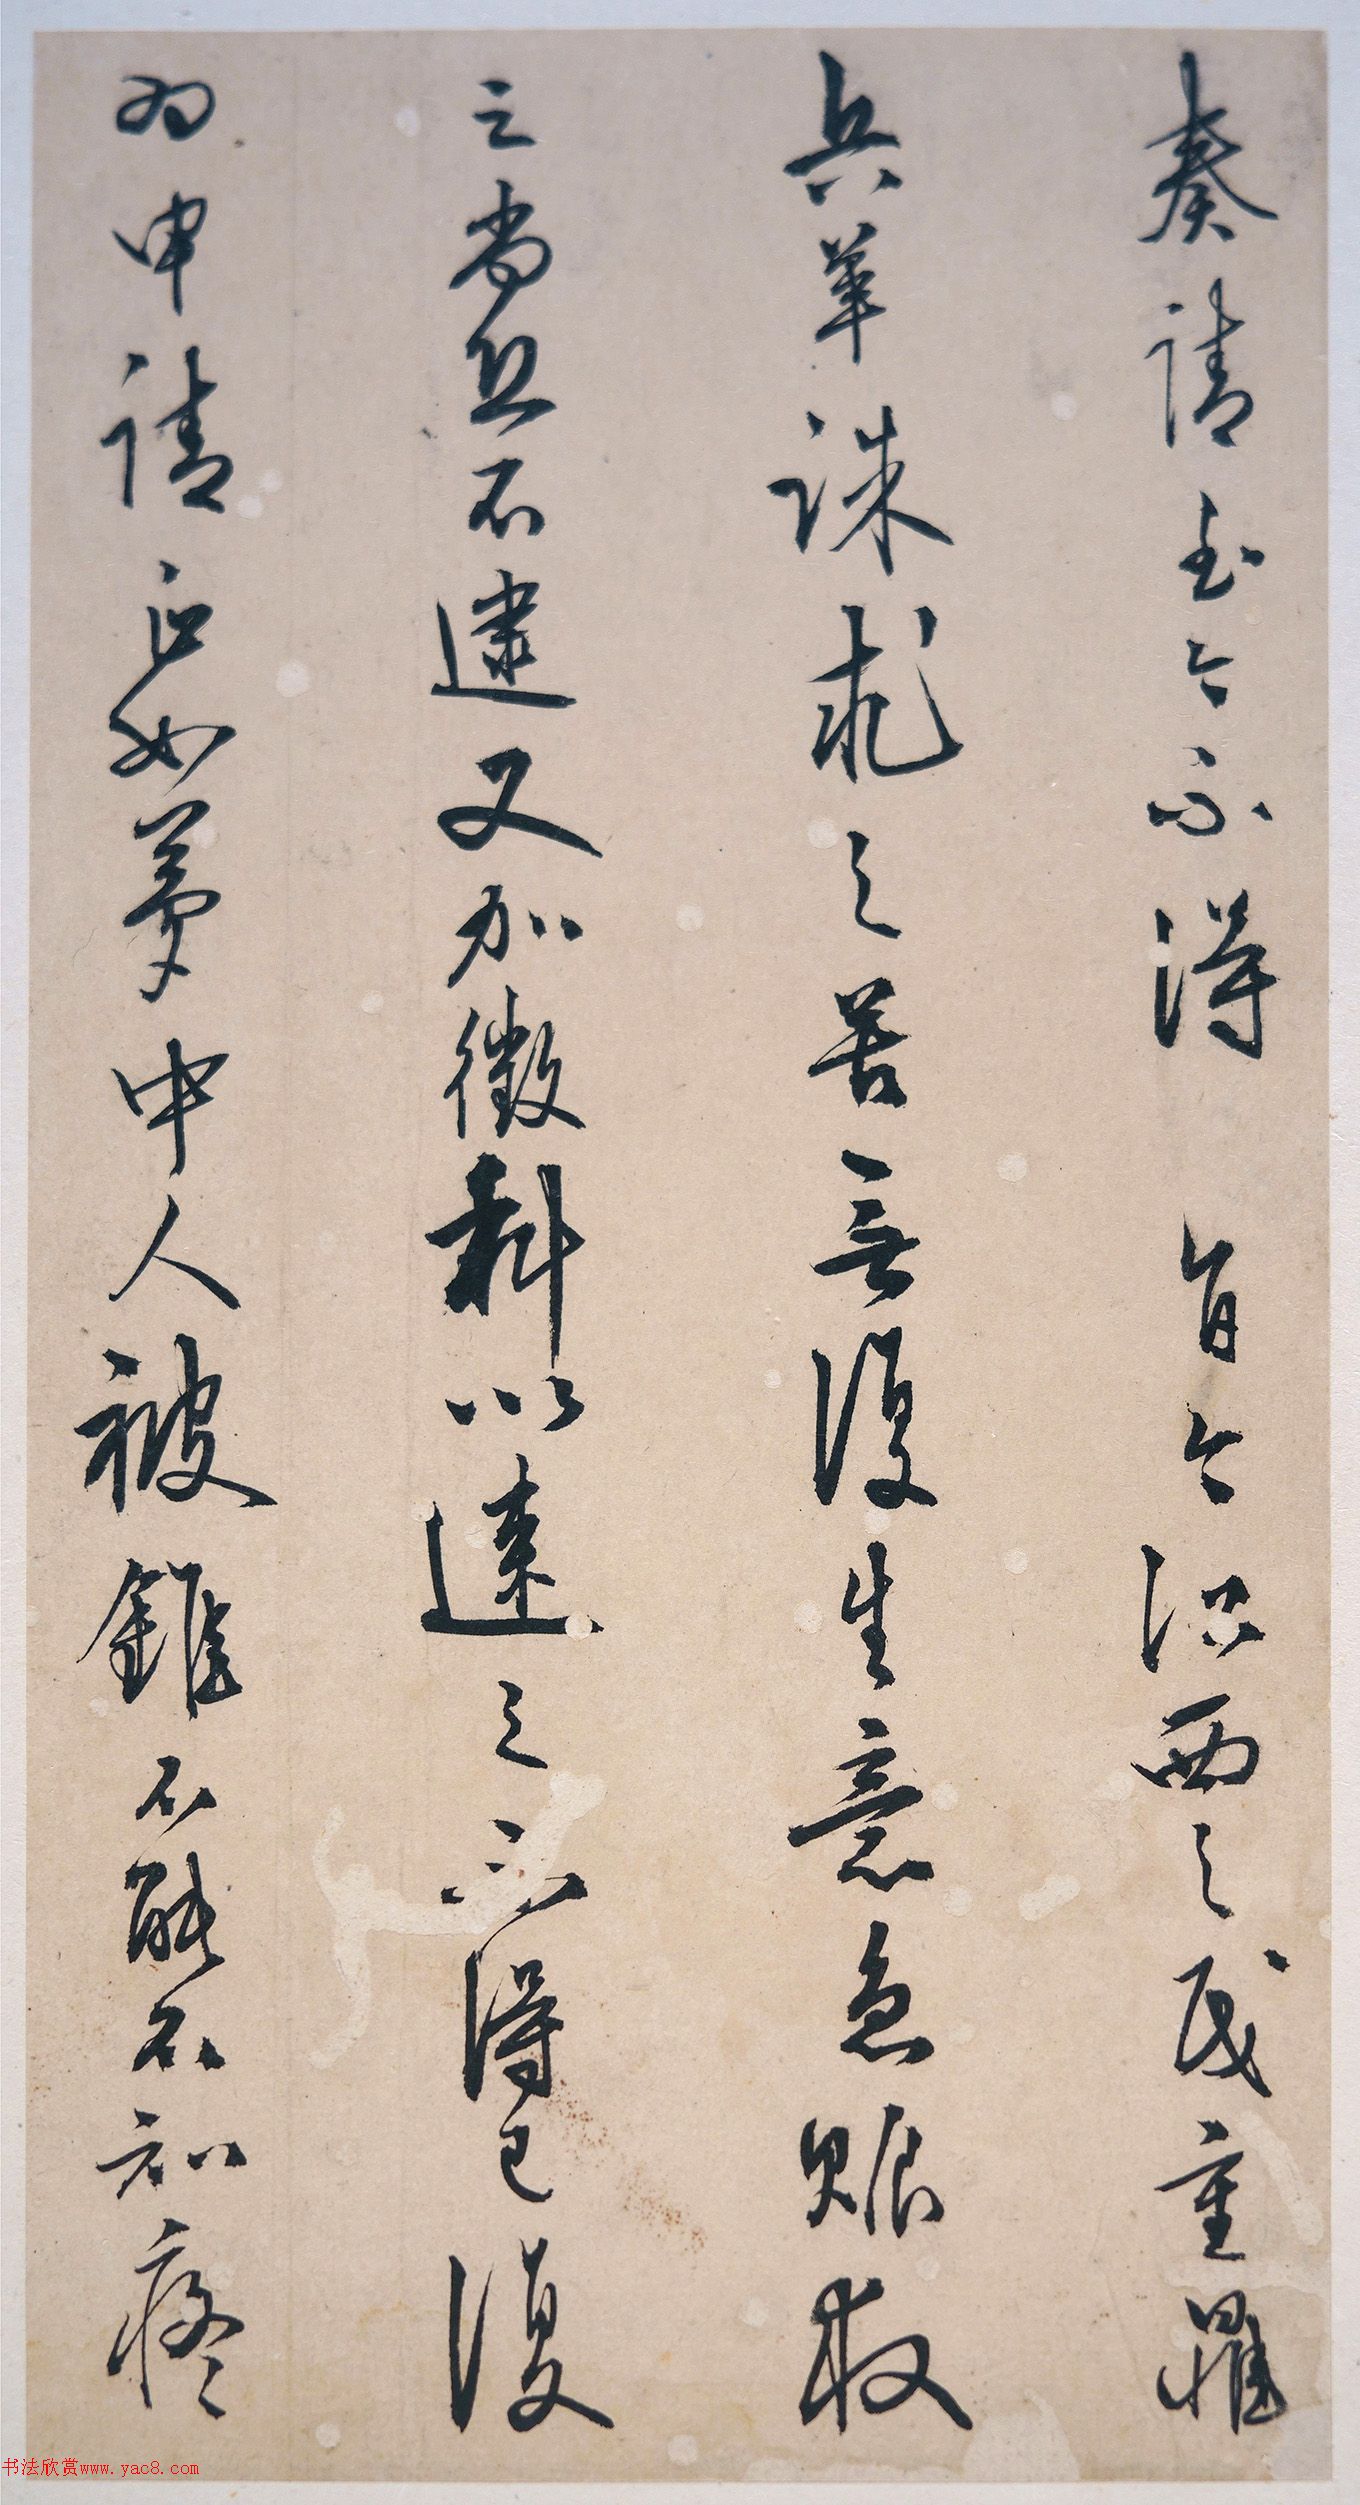 奏請至今不得 旨今江西之民重罹
兵革誅求之苦無復生意急賑救
之尚恐不逮又加徵科以速之不得已復
為申請正如夢中人被錐不能不知疼
书法欣赏www.yac8.com